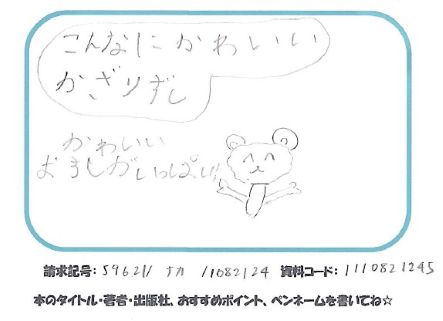 こんなにかわいい
かざりずし
かわいい
おすしがいっぱい!!
請求記号: 59621/ ナカ /1082124 資料コード: 1110821245
本のタイトル・著者・出版社、おすすめポイント、ペンネームを書いてね☆